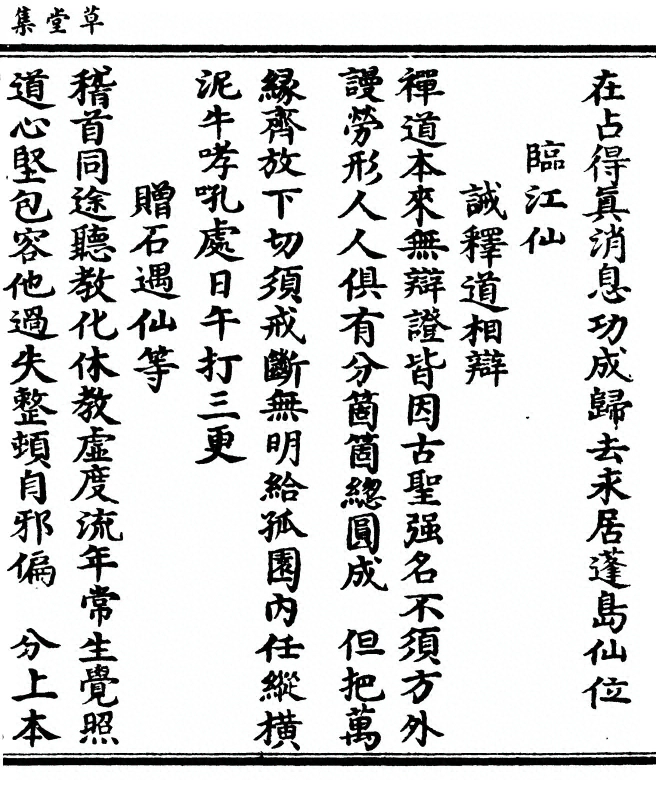 草堂集
在占得眞消息功成歸去來居蓬島仙位
臨江仙
誡釋道相辯
禪道本來無辯證皆因古聖强名不須方外
謾勞形人人俱有分箇箇總圓成　但把萬
緣齊放下切須戒斷無明給孤園内任縱橫
泥牛哮吼處日午打三更
贈石遇仙等
稽首同途聽教化休教虛度流年常生覺照
道心堅包容他過失整頓自邪偏　分上本